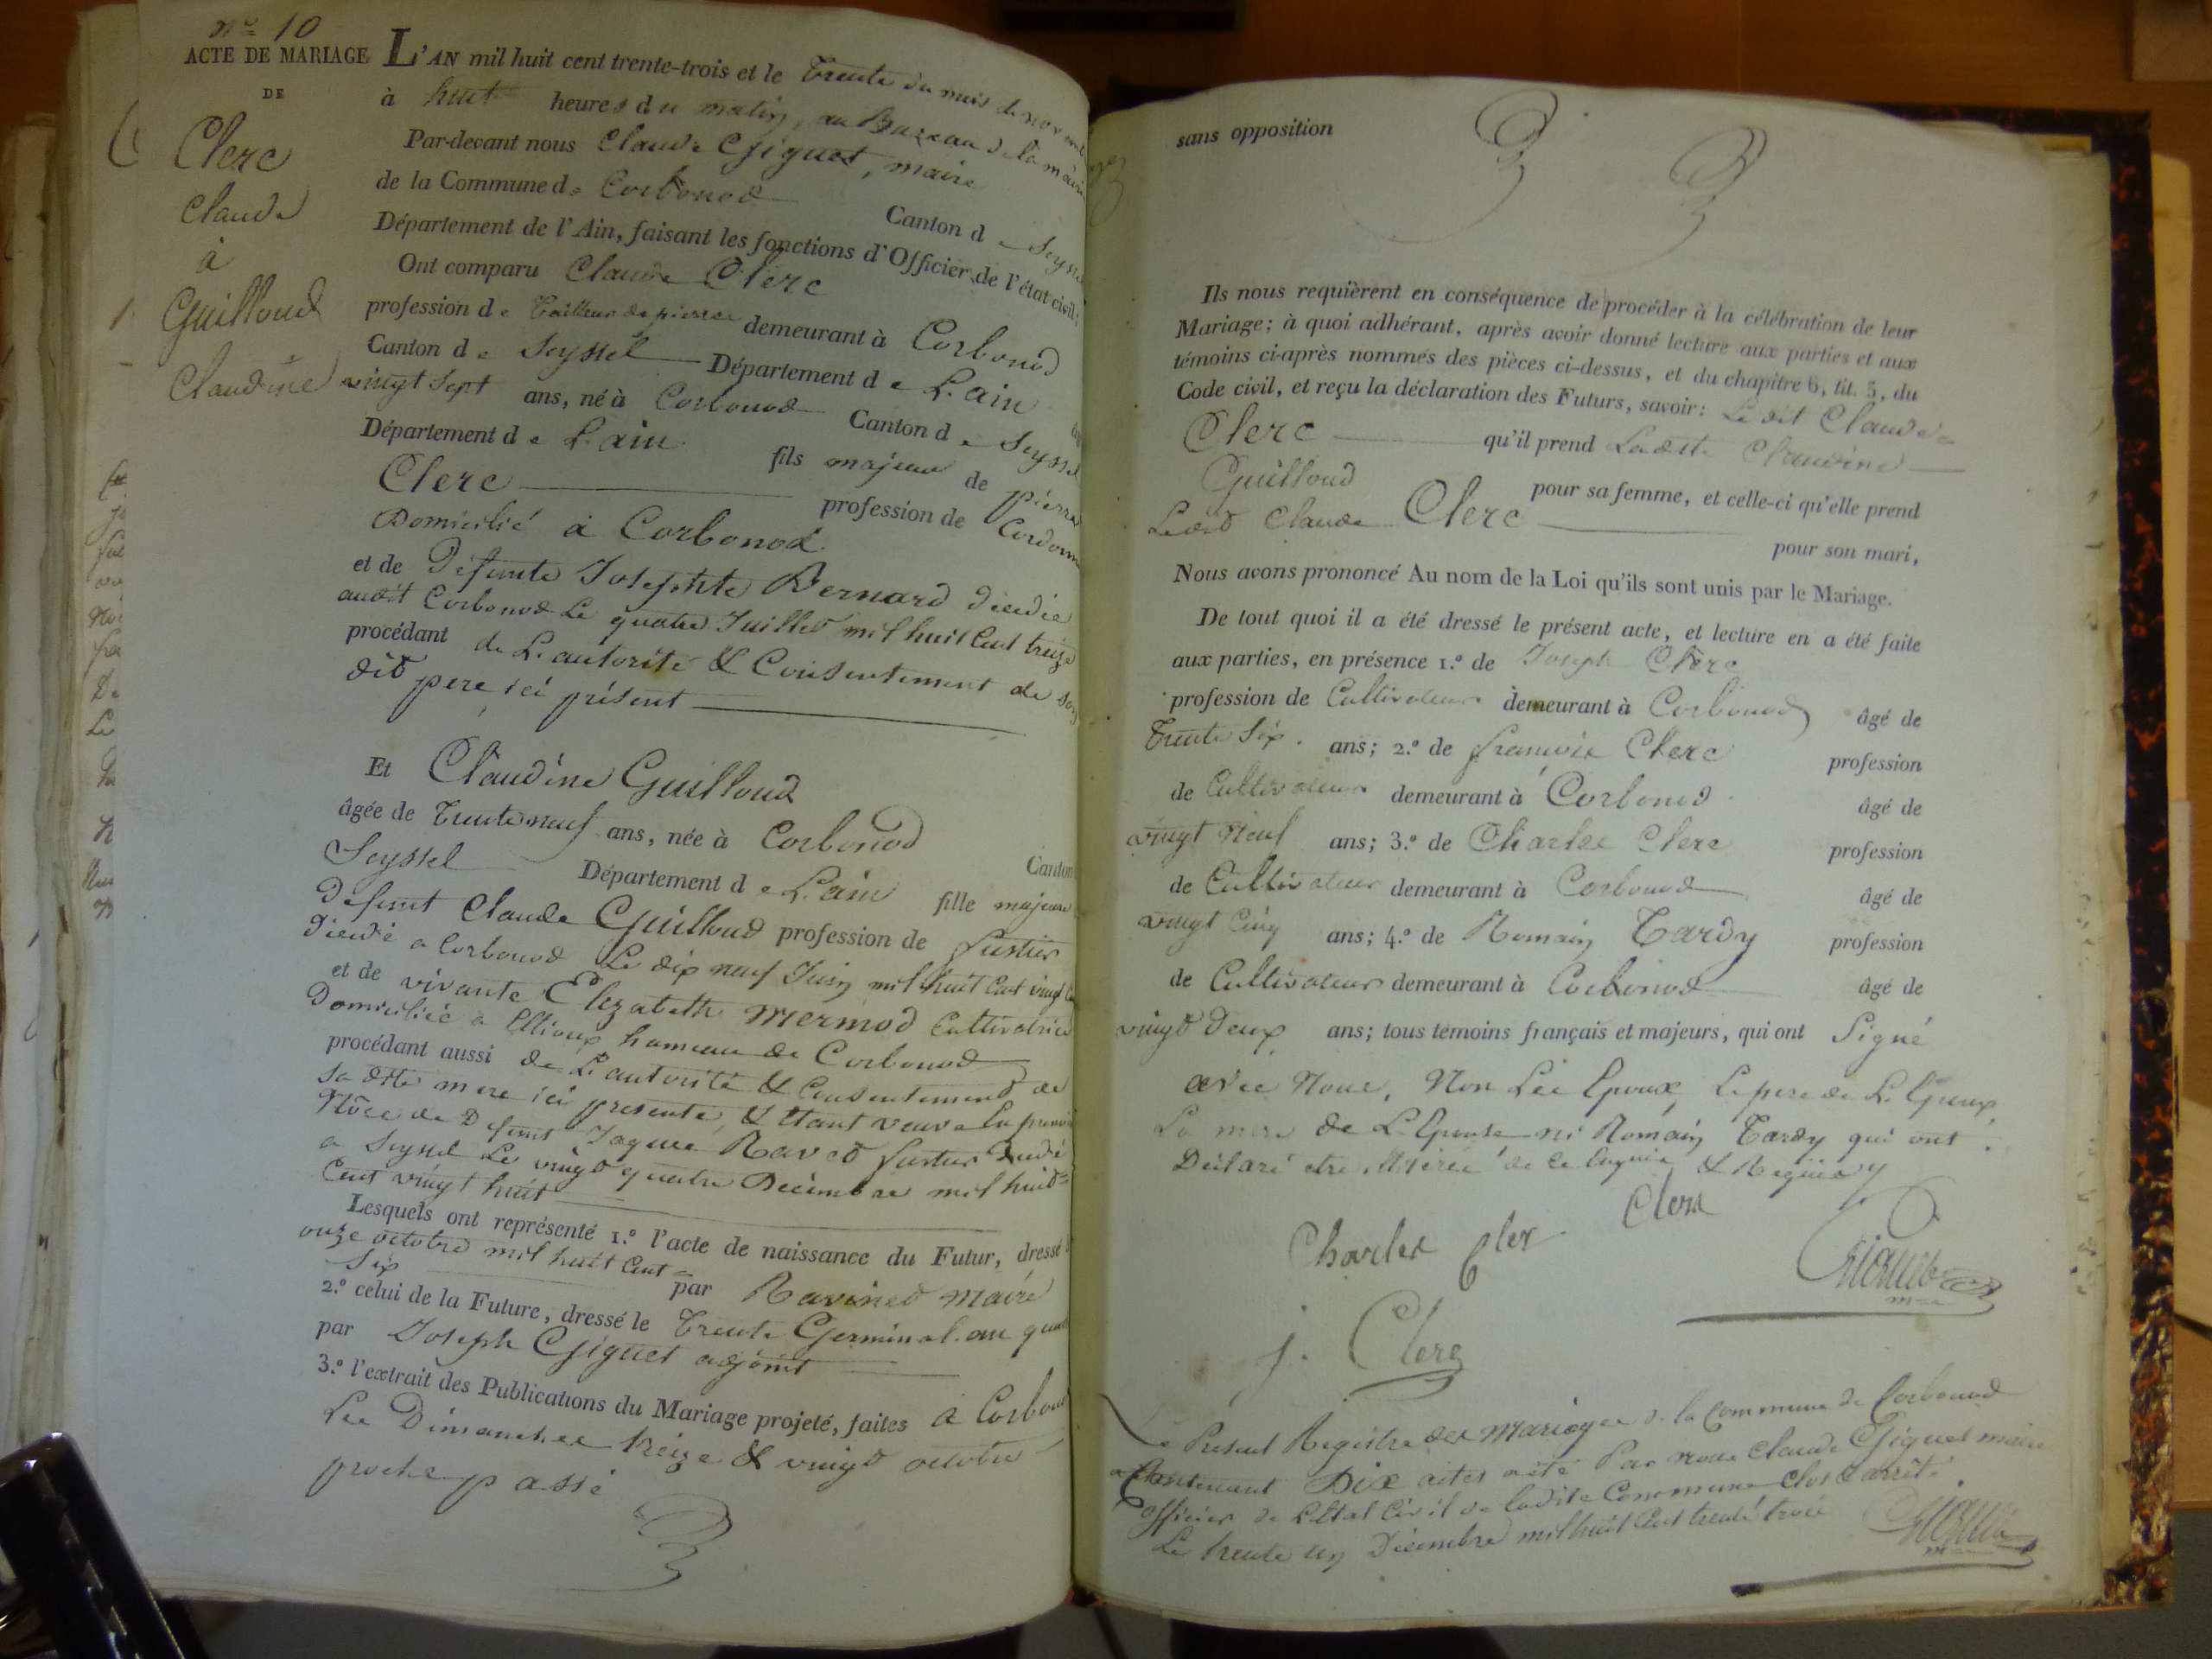 nº 10
ACTE DE MARIAGE
DE
Clerc
Claude
à
Guilloud
Claudine
L'AN mil huit cent trente-trois et le Trente du mois de novembre
à huit heures du matin, au Bureau de la mairie
Par-devant nous Claude Gignet, maire
de la Commune de Corbonod Canton de Seyssel
Département de l'Ain, faisant les fonctions d'Officier de l'état civil;
Ont comparu Claude Clerc
profession de Tailleur de pierre demeurant à Corbonod
Canton de Seyssel Département de L'ain
vingt sept ans, né à Corbonod Canton de Seyssel
Département de L'ain fils majeur de pierre
Clerc profession de Cordonn
Domicilié à Corbonod
et de Défunte Josephte Bernard décédée
audit Corbonod Le quatre Juillet mil huit Cent treize
procédant de L'autorité & Consentement de son
dit pere, ici présent
Et Claudine Guilloud
âgée de Trente neuf ans, née à Corbonod Canton
Seyssel Département de L'ain fille majeure
Defunt Claude Guilloud profession de fustier
Décédé a Corbonod Le dix neuf Juin mil huit Cent vingt
et de vivante Elizabeth Mermod Cultivatrice
Domiciliée a hameau de Corbonod
procédant aussi de L'autorité & Consentement de
sa dite mere ici presente, & Etant veuve En premi
Nôce de Defunt Jaques Ravod fustier Décédé
a Seyssel Le vingt quatre Décembre mil huit
Cent vingt huit
Lesquels ont représenté 1.º l'acte de naissance du Futur, dressé
onze octobre mil huit Cent
Six par Ravinet Maire
2.º celui de la Future, dressé le Trente Germinal an qua
par Joseph Gignet adjoint
3.º l'extrait des Publications du Mariage projeté, faites à Corbonod
Les Dimanches treize & vingt octobre
proche passé
sans opposition
Ils nous requièrent en conséquence de procéder à la célébration de leur
Mariage; à quoi adhérant, après avoir donné lecture aux parties et aux
témoins ci-après nommés des pièces ci-dessus, et du chapitre 6, tit. 5, du
Code civil, et reçu la déclaration des Futurs, savoir: Le dit Claude
Clerc qu'il prend Ladite Claudine
Guilloud pour sa femme, et celle-ci qu'elle prend
Ledit Claude Clerc pour son mari,
Nous avons prononcé Au nom de la Loi qu'ils sont unis par le Mariage.
De tout quoi il a été dressé le présent acte, et lecture en a été faite
aux parties, en présence 1.º de Joseph Clerc
profession de Cultivateur demeurant à Corbonod âgé de
Trente Six ans; 2.º de françois Clerc profession
de Cultivateur demeurant à Corbonod âgé de
vingt Neuf ans; 3.º de Charles Clerc profession
de Cultivateur demeurant à Corbonod âgé de
vingt Cinq ans; 4.º de Romain Tardy profession
de Cultivateur demeurant à Corbonod âgé de
vingt Deux ans; tous témoins français et majeurs, qui ont Signé
avec Nous, Non Les Epoux, Le pere de L'Epoux
La mere de L'Epouse ni Romain Tardy qui ont
Déclaré etre Illitéré de ce Enquis & Requis
Clerc
Charles Cler
Gignet
j. Clerc
Le Présent Registre des Mariages de la Commune de Corbonod
Contenant Dix actes a été Par nous Claude Gignet maire
officier de L'Etat Civil de ladite Commune clos & arrêté
Le trente un Décembre mil huit Cent trente trois
Gignet